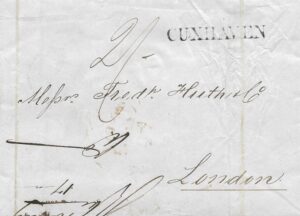 CUXHAVEN
2/-
Messrs. Fredk. Huth & Co
London